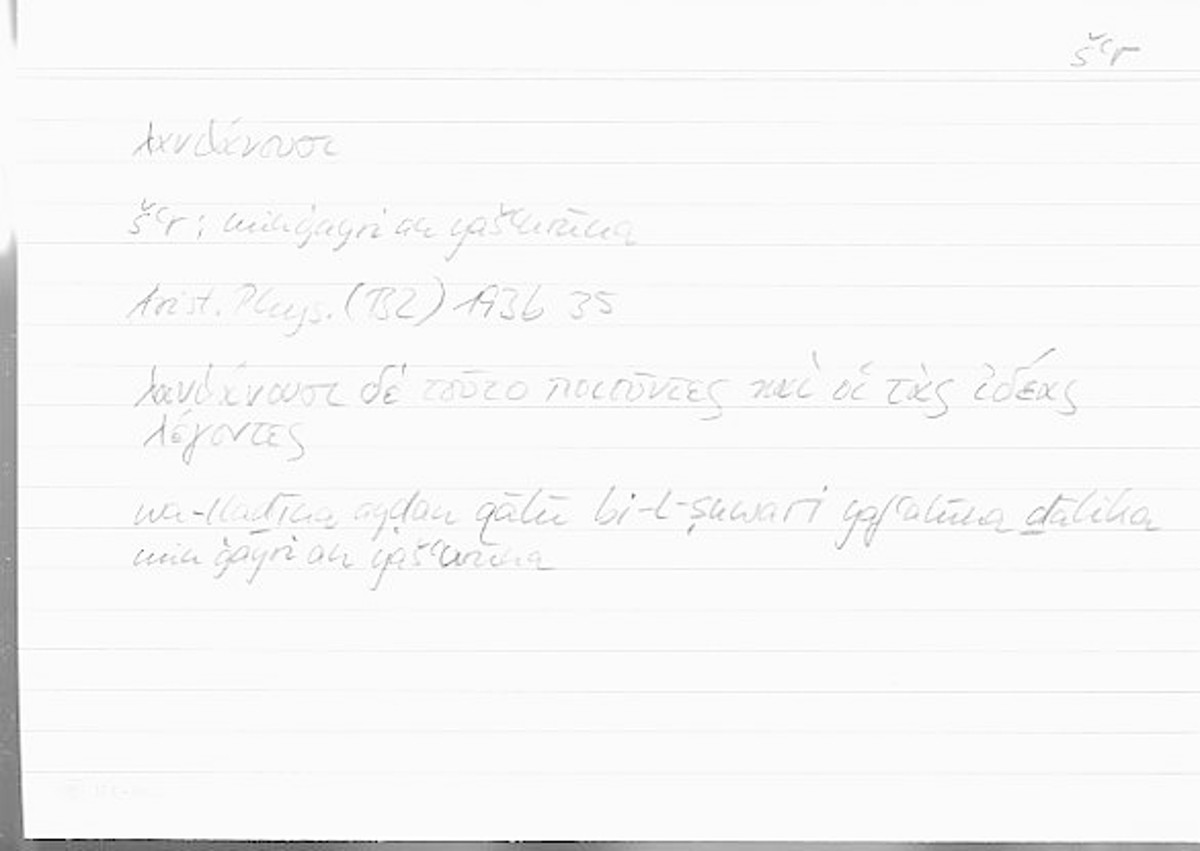 šʿr
λανθάνουσι
šʿr: min ġayri an yašʿurūna
Arist. Phys. (B2) 193b 35
λανθάνουσι δὲ τοῦτο ποιοῦντες καὶ οἱ τὰς ἰδέας
λέγοντες
wa-lladīna ayḍan qālū bi-l-ṣuwari yafʿalūna ḏālika
min ġayri an yašʿurūna